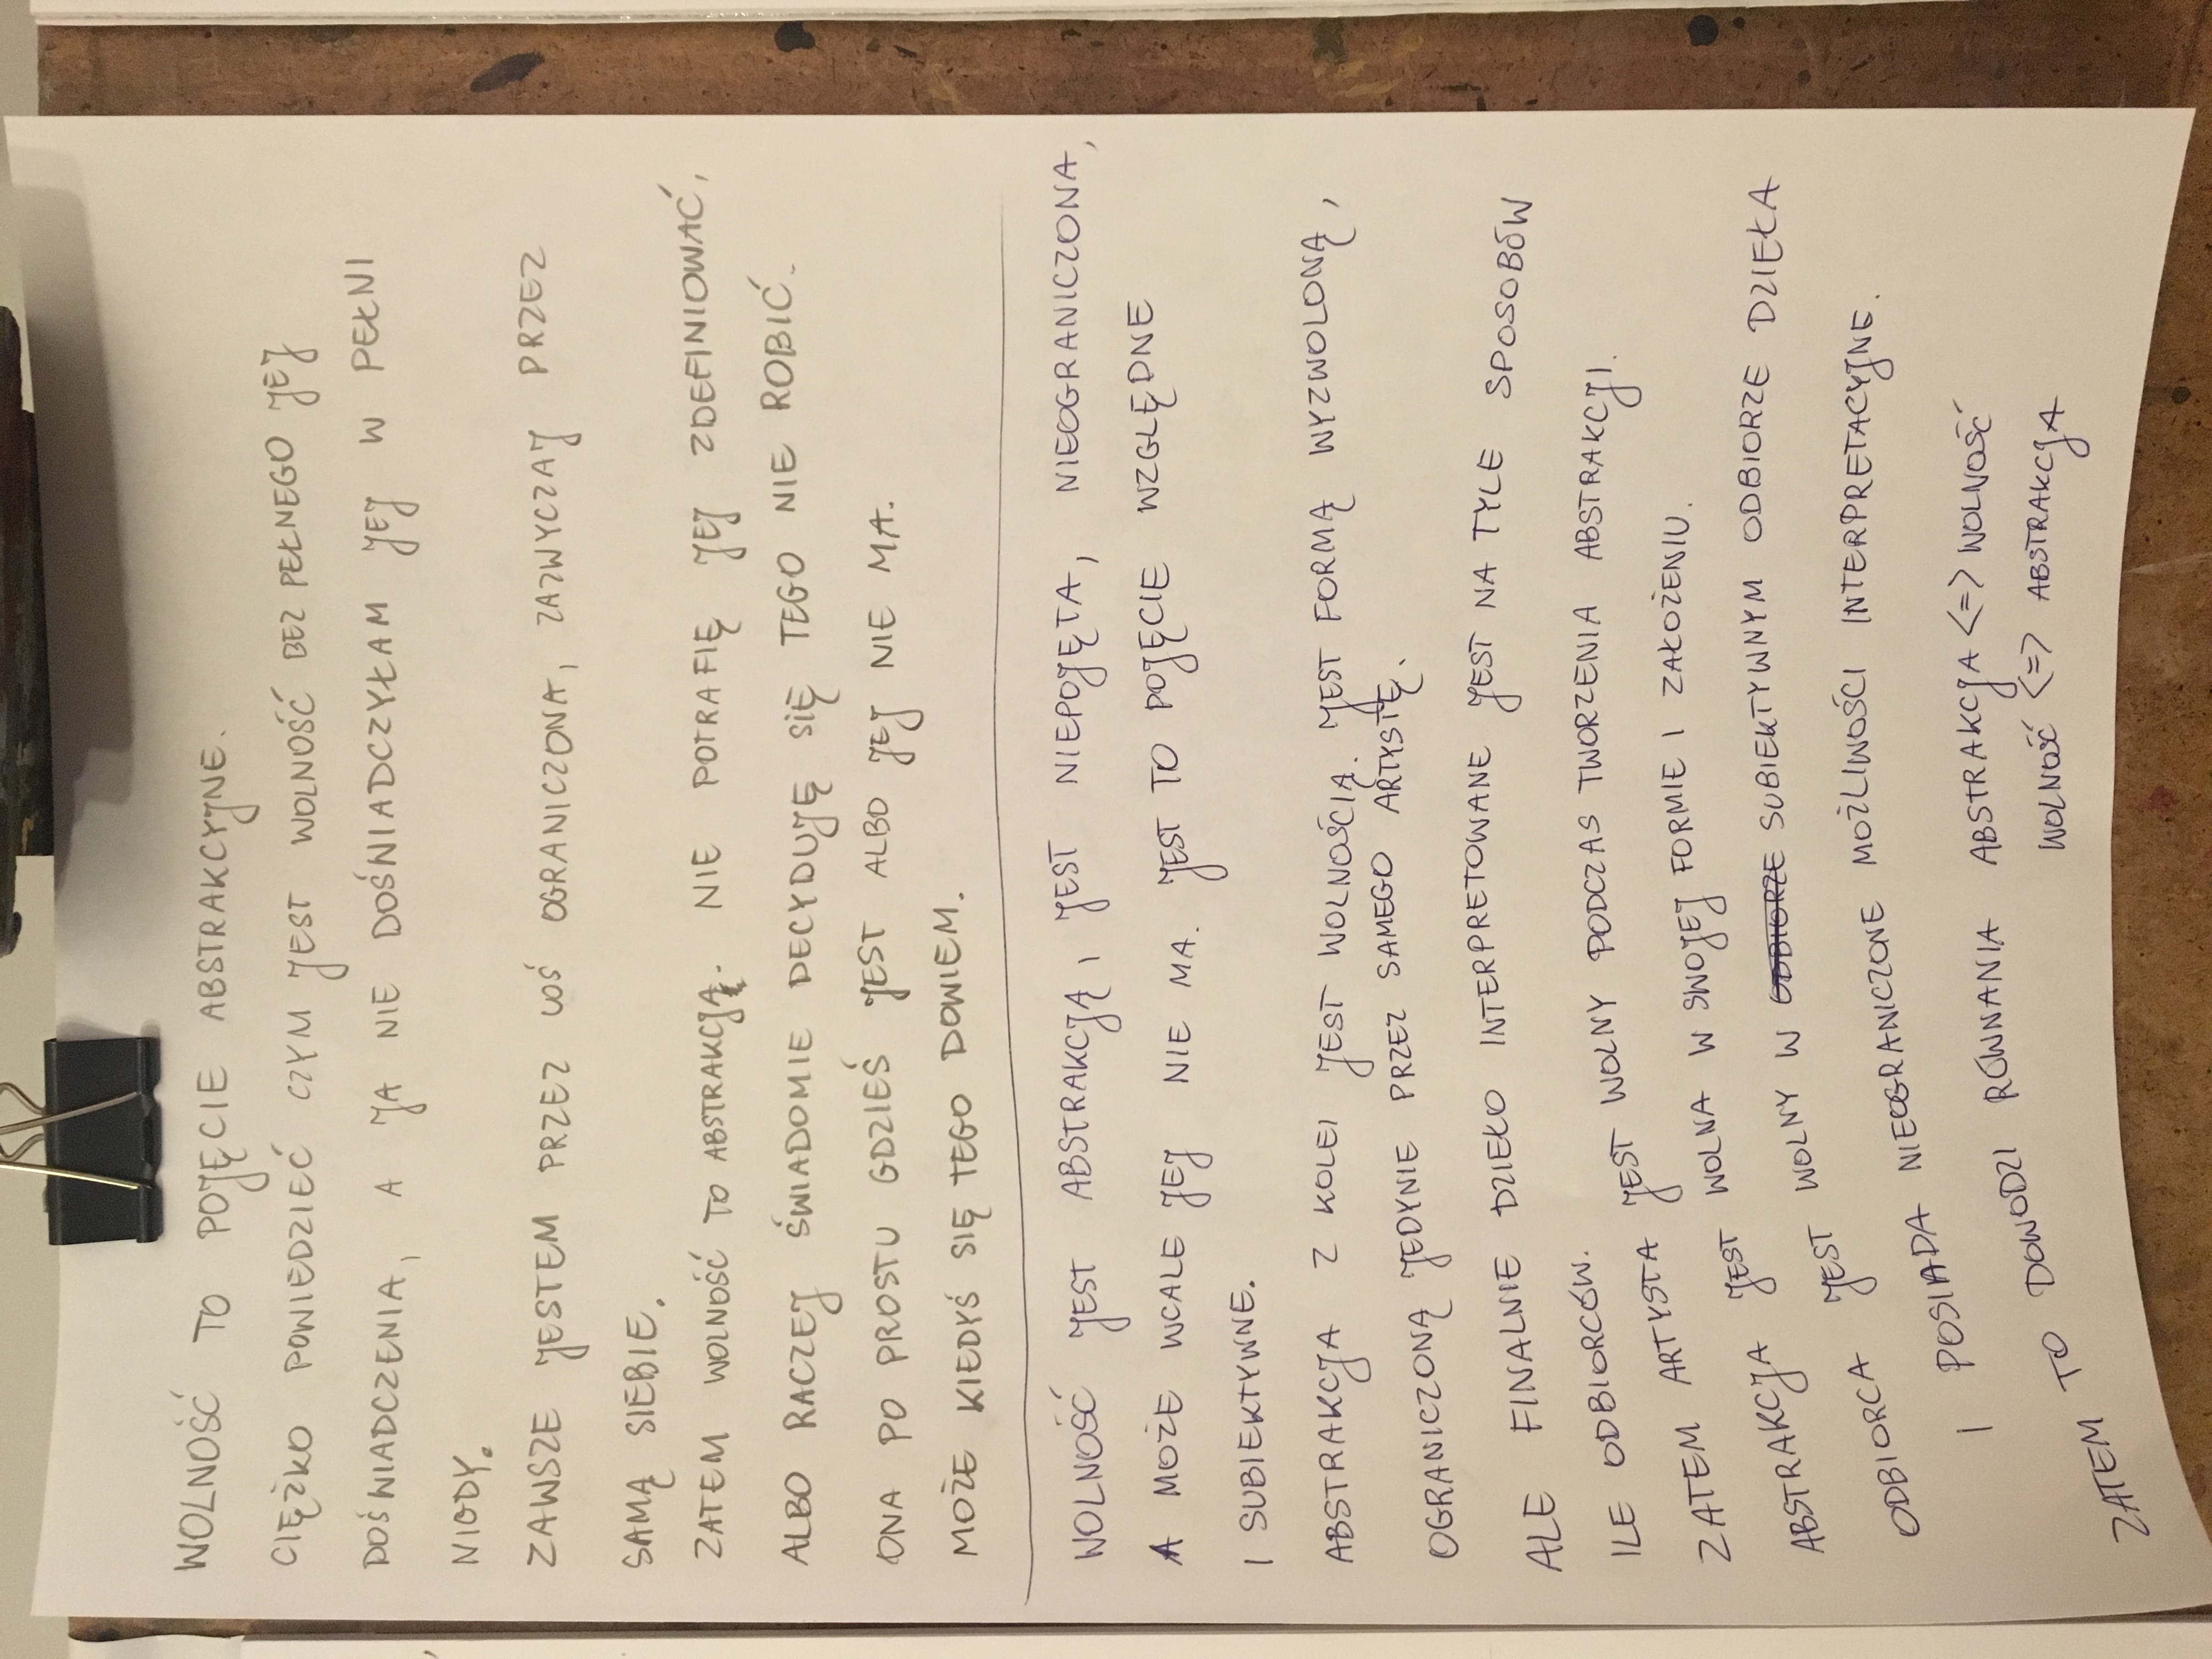 WOLNOŚĆ TO POJĘCIE ABSTRAKCYJNE.
CIĘŻKO POWIEDZIEĆ CZYM JEST WOLNOŚĆ BEZ PEŁNEGO JEJ
DOŚWIADCZENIA, A JA NIE DOŚWIADCZYŁAM JEJ W PEŁNI
NIGDY.
ZAWSZE JESTEM PRZEZ COŚ OGRANICZONA, ZAZWYCZAJ PRZEZ
SAMĄ SIEBIE.
ZATEM WOLNOŚĆ TO ABSTRAKCJA. NIE POTRAFIĘ JEJ ZDEFINIOWAĆ,
ALBO RACZEJ ŚWIADOMIE DECYDUJĘ SIĘ TEGO NIE ROBIĆ.
ONA PO PROSTU GDZIEŚ JEST ALBO JEJ NIE MA.
MOŻE KIEDYŚ SIĘ TEGO DOWIEM.
WOLNOŚĆ JEST ABSTRAKCJĄ, JEST NIEPOJĘTA, NIEOGRANICZONA,
A MOŻE WCALE JEJ NIE MA. JEST TO POJĘCIE WZGLĘDNE
I SUBIEKTYWNE.
ABSTRAKCJA Z KOLEI JEST WOLNOŚCIĄ. JEST FORMĄ WYZWOLONĄ,
OGRANICZONĄ JEDYNIE PRZEZ SAMEGO ARTYSTĘ.
ALE FINALNIE DZIEŁO INTERPRETOWANE JEST NA TYLE SPOSOBÓW
ILE ODBIORCÓW.
ZATEM ARTYSTA JEST WOLNY PODCZAS TWORZENIA ABSTRAKCJI.
ABSTRAKCJA JEST WOLNA W SWOJEJ FORMIE I ZAŁOŻENIU.
ODBIORCA JEST WOLNY W ODBIORZE SUBIEKTYWNYM ODBIORZE DZIEŁA
I POSIADA NIEOGRANICZONE MOŻLIWOŚCI INTERPRETACYJNE.
ZATEM TO DOWODZI RÓWNANIA ABSTRAKCJA <=> WOLNOŚĆ
WOLNOŚĆ <=> ABSTRAKCJA